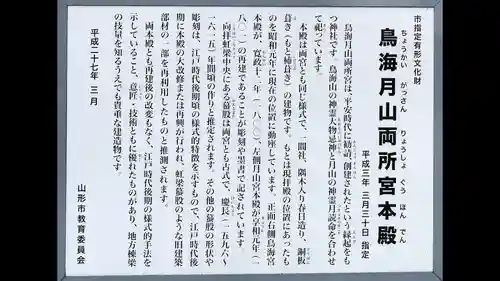 市指定有形文化財
鳥海月山両所宮本殿
ちょうかい がっさん りょうしょ ぐう ほん でん
平成三年三月三十日 指定
鳥海月山両所宮は、平安時代に勧請、創建されたという縁起をも
つ神社です。鳥海山の神霊大物忌神と月山の神霊月読命を合わせ
て祀っています。
本殿は両宮とも同じ様式で、一間社、隅木入り春日造り、銅板
葺き(もと柿葺き)の建物です。もとは現拝殿の位置にあったも
のを昭和元年に現在の位置に動座しています。正面右側鳥海宮
本殿が、寛政十二年(一八〇〇)、左側月山宮本殿が享和元年(一
八〇一)の再建であることが彫刻や墨書で記されています。
向拝虹梁中央にある蟇股は両宮とも古式で、慶長(一五九六〜
一六一五)年間頃の作りと推定されます。その他の蟇股の形状や
彫刻は、江戸時代後期頃の様式的特徴を示すもので、江戸時代後
期に本殿の大改修または再興が行われ、虹梁蟇股のような旧建築
部材の一部を再利用したものと推測されます。
両本殿とも再建後の改変もなく、江戸時代後期の様式的手法を
示していること、意匠・技術ともに優れたものがあり、地方棟梁
の技量を知るうえでも貴重な建造物です。
平成二十七年 三月
山形市教育委員会